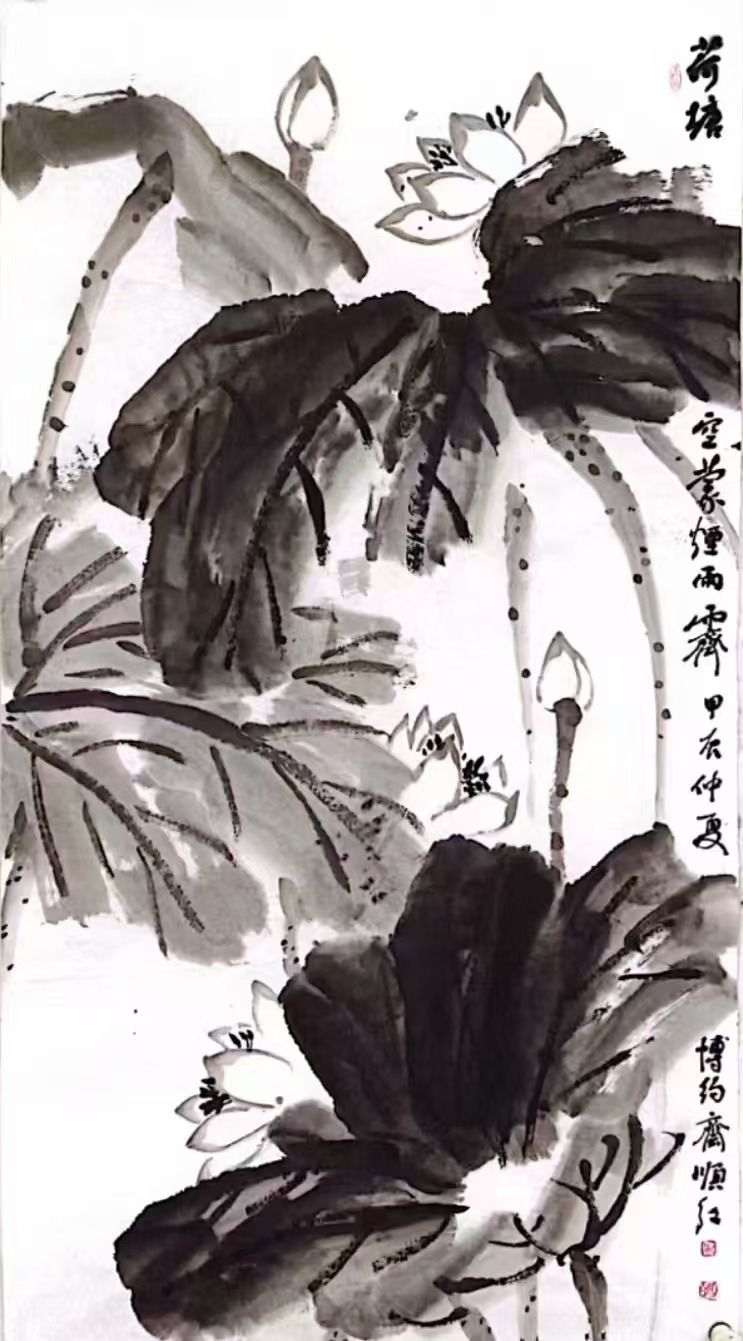 荷塘
空蒙煙雨霽 甲辰仲夏
博約齋順红